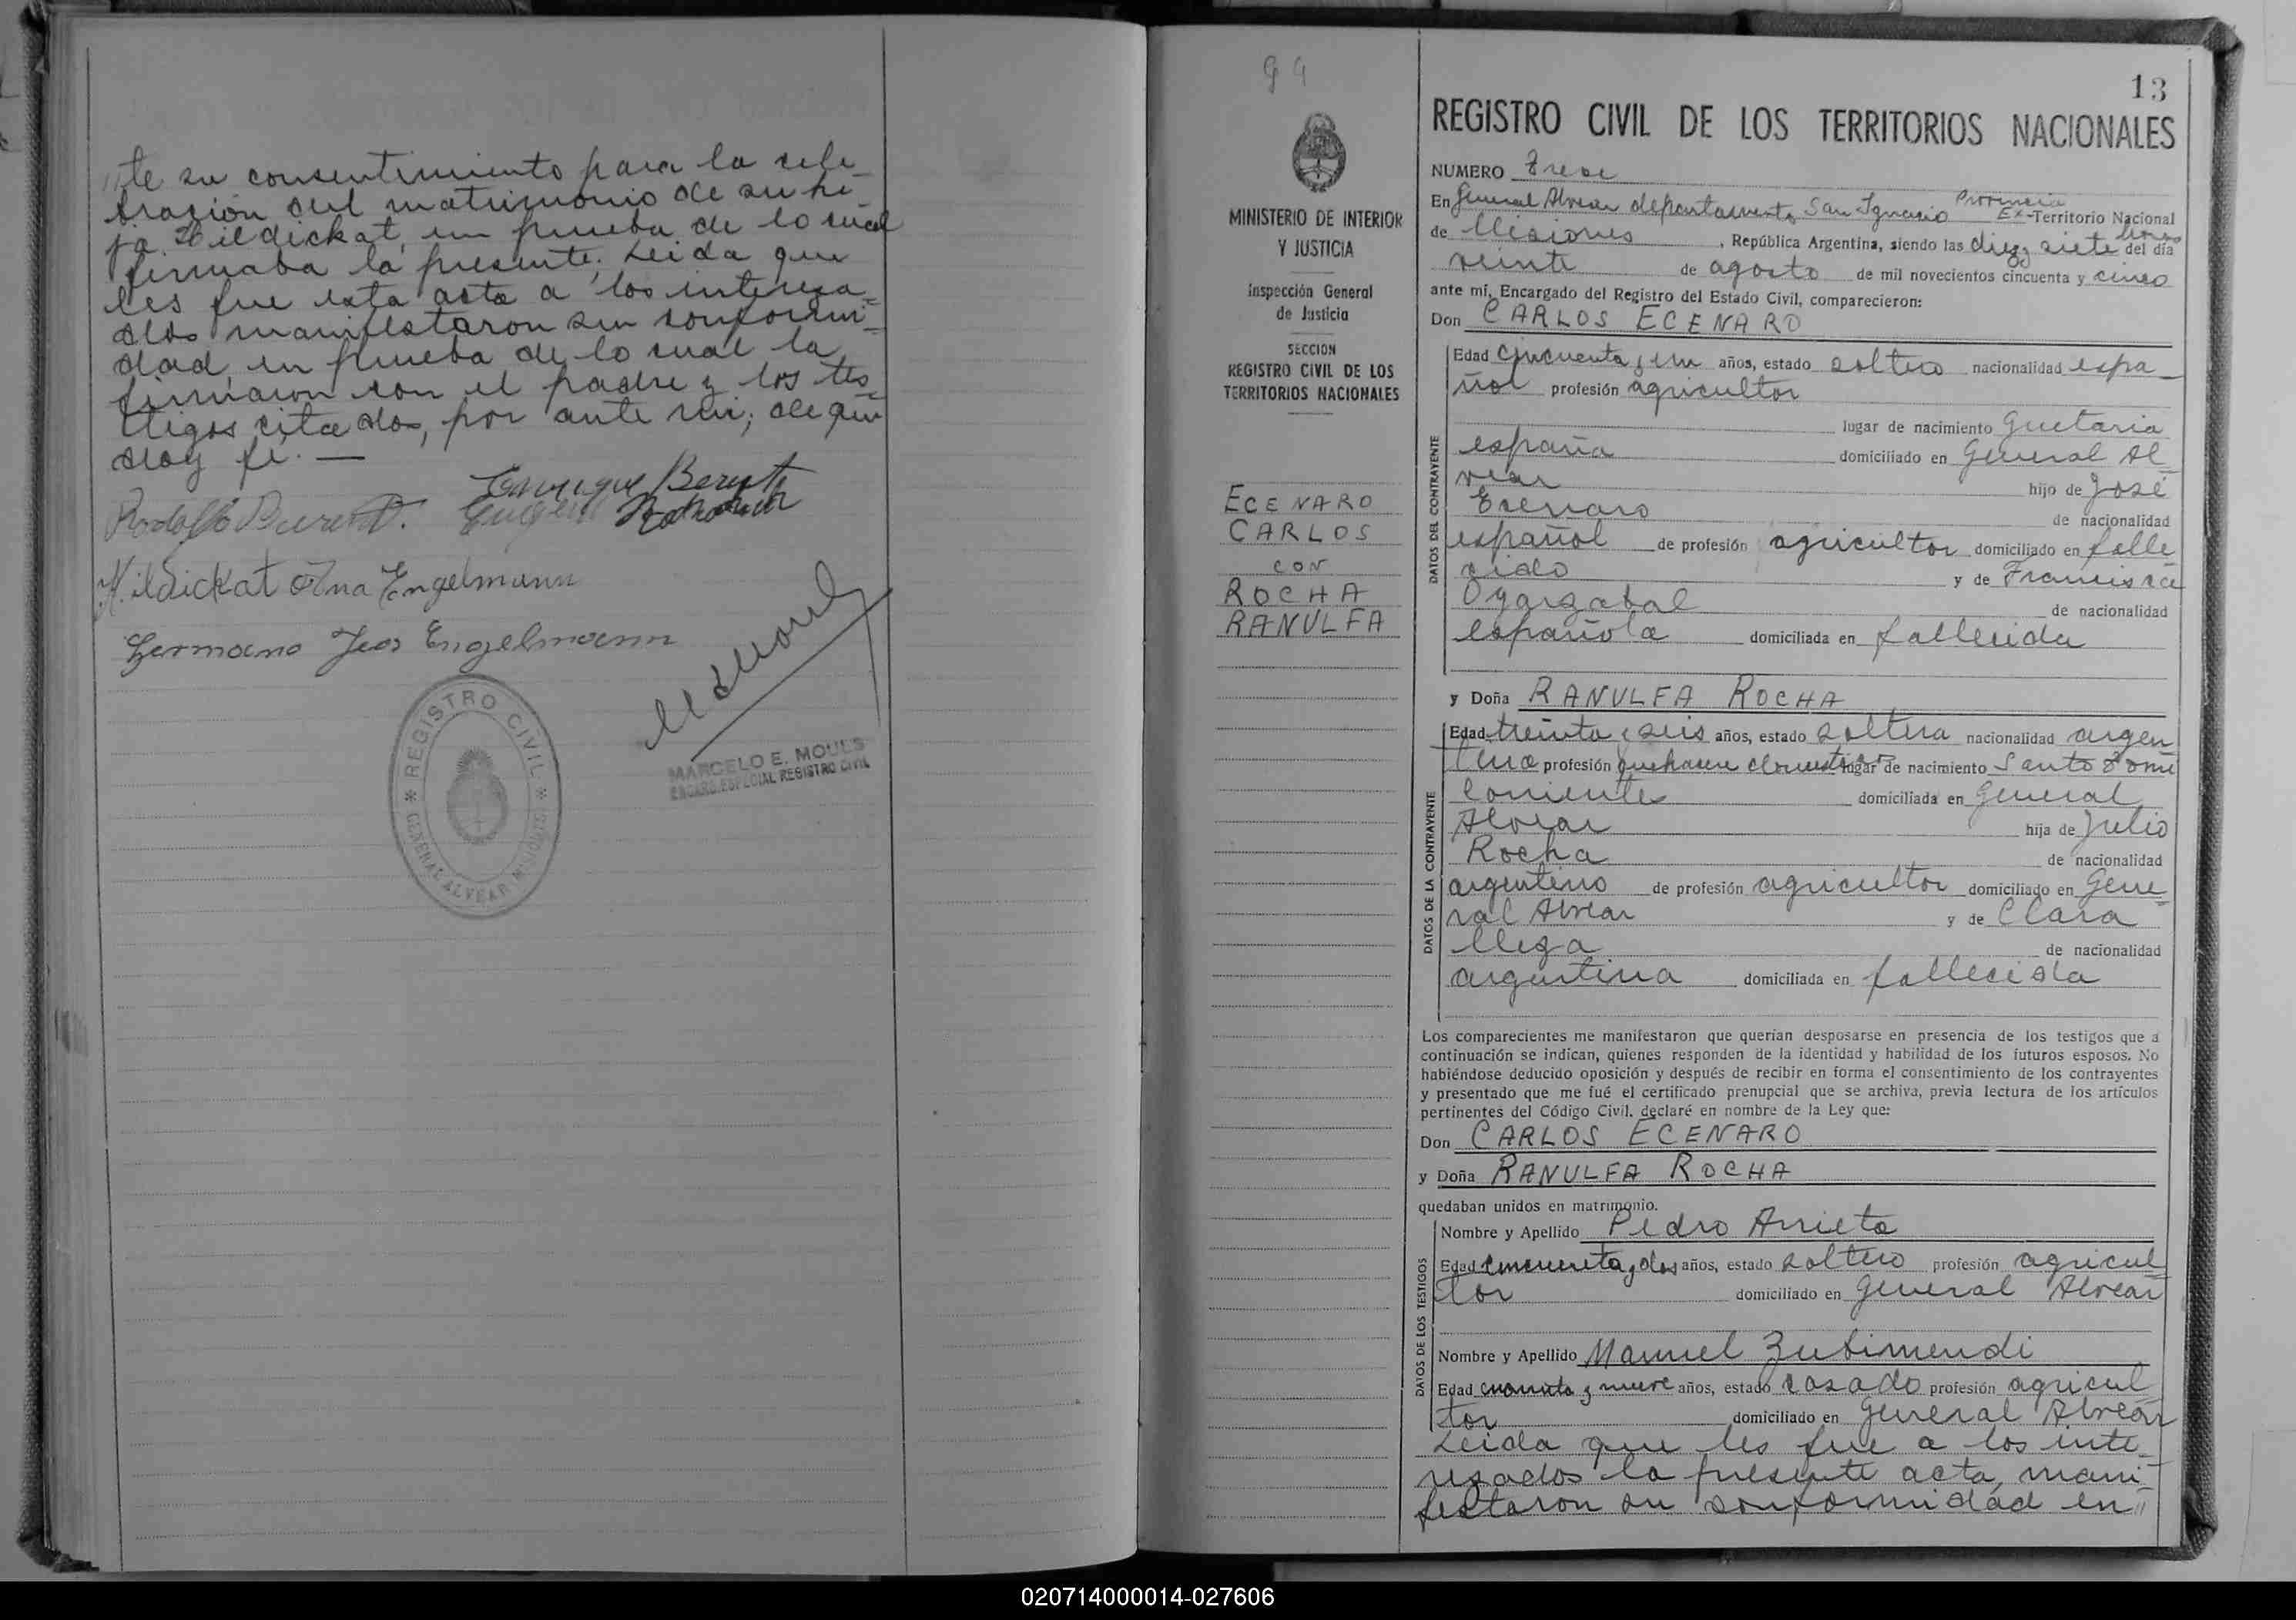 //te su consentimiento para la cele-
bración del matrimonio de su hi-
ja Hildickat, en prueba de lo cual
firmaba la presente. Leida que
les fue esta acta a los interesa-
dos manifestaron su conformi-
dad, en prueba de lo cual la
firmaron con el padre y los tes-
tigos citados, por ante mi; de que
doy fé. —
Enrique Berndt
Rodolfo Berndt.
Hildickat Ana Engelmann
Germano Jeas Engelmann
REGISTRO CIVIL
GENERAL ALVEAR MISIONES
MARCELO E. MOULS
ENCARG. ESPECIAL REGISTRO CIVIL
94
MINISTERIO DE INTERIOR
Y JUSTICIA
Inspección General
de Justicia
SECCION
REGISTRO CIVIL DE LOS
TERRITORIOS NACIONALES
ECENARO
CARLOS
CON
ROCHA
RANULFA
13
REGISTRO CIVIL DE LOS TERRITORIOS NACIONALES
NUMERO Trece
En General Alvear departamento San Ignacio Provincia Ex-Territorio Nacional
de Misiones , República Argentina, siendo las diez y siete horas del día
veinte de agosto de mil novecientos cincuenta y cinco
ante mí, Encargado del Registro del Estado Civil, comparecieron:
Don CARLOS ECENARO
DATOS DEL CONTRAYENTE
Edad cincuenta y un años, estado soltero nacionalidad espa-
ñol profesión agricultor
lugar de nacimiento Guetaria
españa domiciliado en General Al-
vear hijo de José
Ecenaro de nacionalidad
español de profesión agricultor domiciliado en falle
cido y de Francisca
Oyarzabal de nacionalidad
española domiciliada en fallecida
y Doña RANULFA ROCHA
DATOS DE LA CONTRAYENTE
Edad treinta y seis años, estado soltera nacionalidad argen
tina profesión quehacere domesticos lugar de nacimiento Santo Tome
Corrientes domiciliada en General
Alvear hija de Julio
Rocha de nacionalidad
argentino de profesión agricultor domiciliado en Gene-
ral Alvear y de Clara
Meza de nacionalidad
argentina domiciliada en fallecida
Los comparecientes me manifestaron que querían desposarse en presencia de los testigos que a
continuación se indican, quienes responden de la identidad y habilidad de los futuros esposos. No
habiéndose deducido oposición y después de recibir en forma el consentimiento de los contrayentes
y presentado que me fué el certificado prenupcial que se archiva, previa lectura de los artículos
pertinentes del Código Civil, declaré en nombre de la Ley que:
Don CARLOS ECENARO
y Doña RANULFA ROCHA
quedaban unidos en matrimonio.
DATOS DE LOS TESTIGOS
Nombre y Apellido Pedro Arrieta
Edad cincuenta y dos años, estado soltero profesión agricul
tor domiciliado en General Alvear
Nombre y Apellido Manuel Zubimendi
Edad cuarenta y nueve años, estado casado profesión agricul
tor domiciliado en General Alvear
Leida que les fue a los inte-
resados la presente acta, mani-
festaron su conformidad en//
020714000014-027606